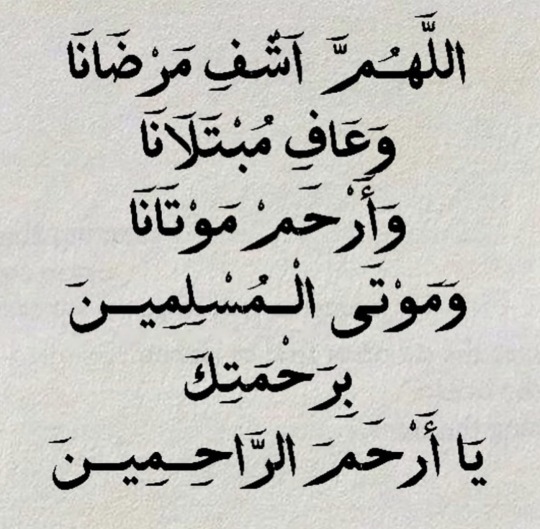 اللَّهُمَّ آشْفِ مَرْضَانَا
وَعَافِ مُبْتَلَانَا
وَأَرْحَمْ مَوْتَانَا
وَمَوْتَى الْمُسْلِمِينَ
بِرَحْمَتِكَ
يَا أَرْحَمَ الرَّاحِمِينَ